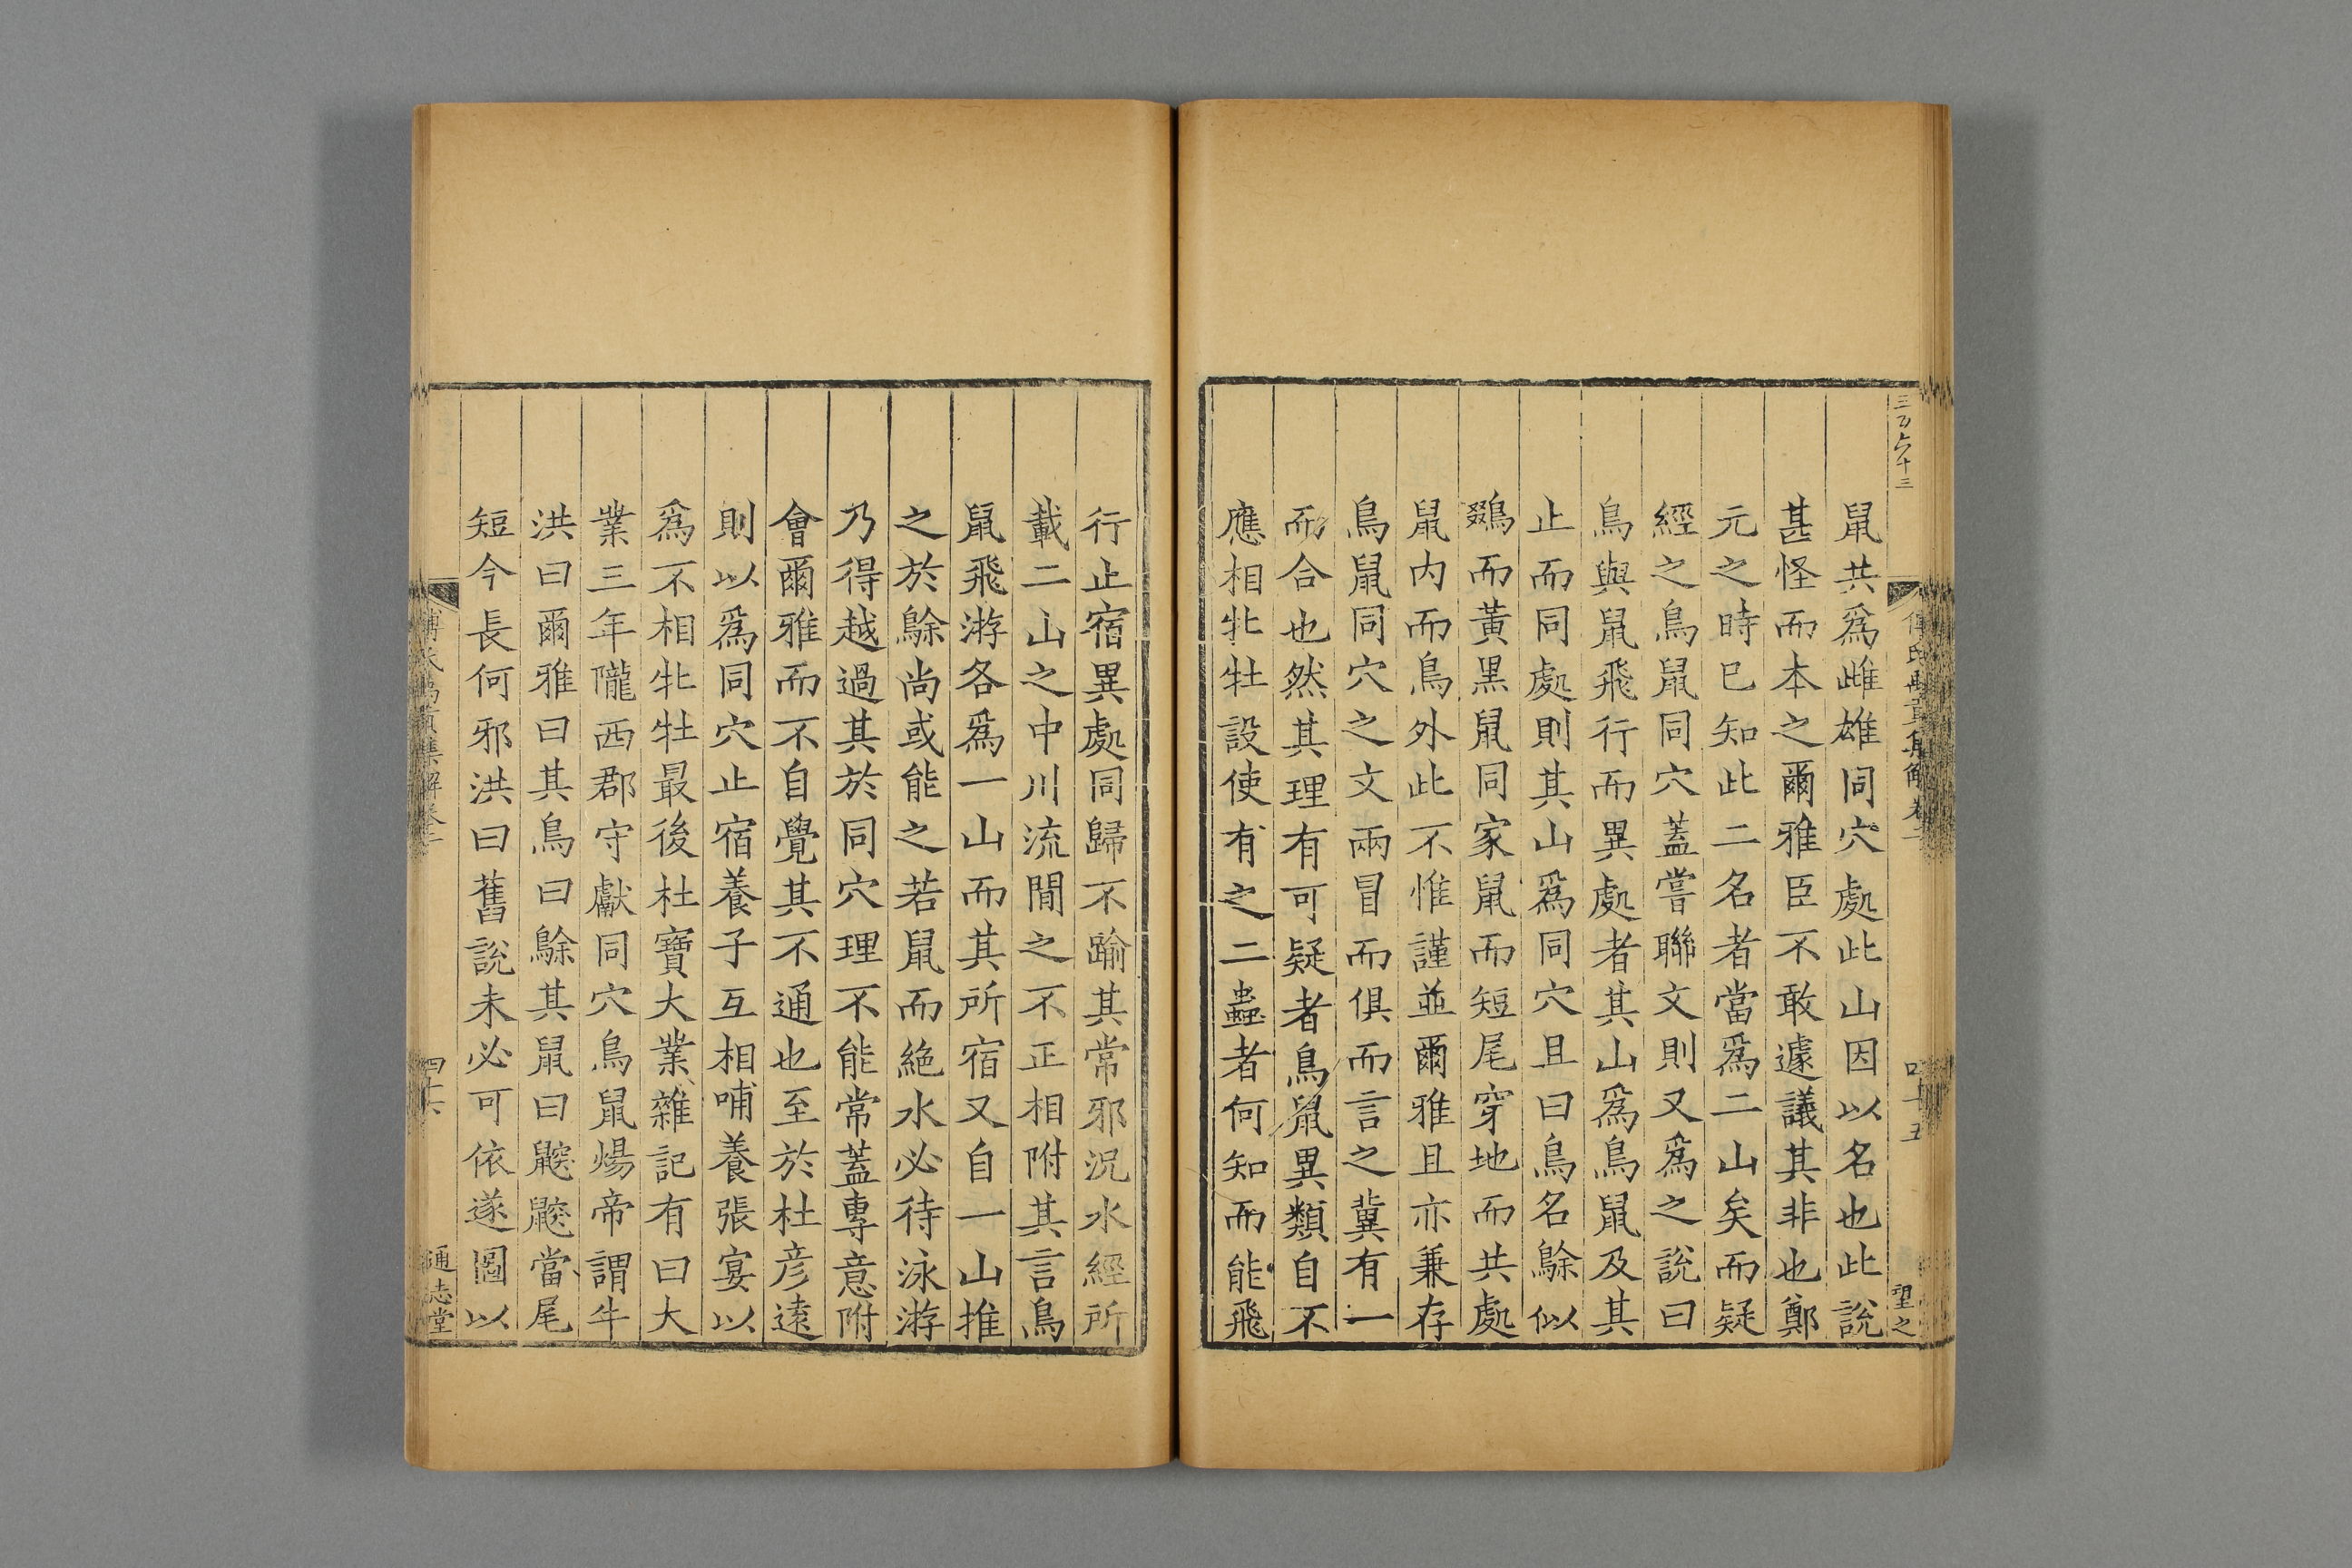 三百六十三
傅氏禹貢集解卷二
四十五
望之
鼠共爲雌雄同穴處此山因以名也此說
甚怪而本之爾雅臣不敢遽議其非也鄭
元之時巳知此二名者當爲二山矣而疑
經之鳥鼠同穴蓋嘗聯文則又爲之說曰
鳥與鼠飛行而異處者其山爲鳥鼠及其
止而同處則其山爲同穴且曰鳥名鵌似
鵽而黃黑鼠同家鼠而短尾穿地而共處
鼠内而鳥外此不惟謹並爾雅且亦兼存
鳥鼠同穴之文兩冒而俱而言之冀有一
而合也然其理有可疑者鳥鼠異類自不
應相牝牡設使有之二蟲者何知而能飛
行止宿異處同歸不踰其常邪況水經所
載二山之中川流閒之不正相附其言鳥
鼠飛游各爲一山而其所宿又自一山推
之於鵌尚或能之若鼠而絶水必待泳游
乃得越過其於同穴理不能常蓋專意附
會爾雅而不自覺其不通也至於杜彦遠
則以爲同穴止宿養子互相哺養張宴以
爲不相牝牡最後杜寶大業雜記有曰大
業三年隴西郡守獻同穴鳥鼠煬帝謂牛
洪曰爾雅曰其鳥曰鵌其鼠曰鼵鼵當尾
短今長何邪洪曰舊說未必可依遂圖以
傅氏禹貢集解卷二
四十六
通志堂